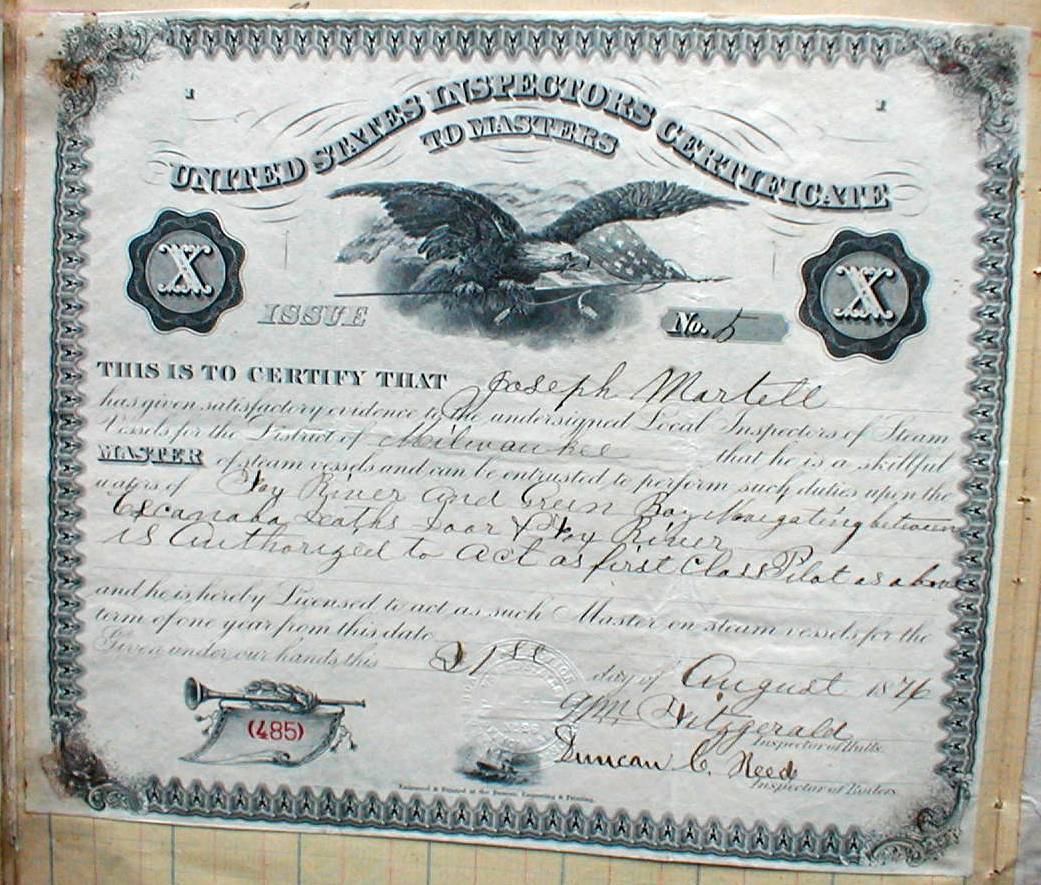 1 1
UNITED STATES INSPECTORS CERTIFICATE
TO MASTERS
X X
ISSUE No. 5
THIS IS TO CERTIFY THAT Joseph Martell
has given satisfactory evidence to the undersigned Local Inspectors of Steam
Vessels for the District of Milwaukee that he is a skillful
MASTER of steam vessels and can be entrusted to perform such duties upon the
waters of Fox River and Green Bay Navigating between
Escanaba Deaths Door & Fox River
is Authorized to Act as first Class Pilot as above
and he is hereby Licensed to act as such Master on steam vessels for the
term of one year from this date
Given under our hands this 21st day of August 1876
Wm Fitzgerald
Inspector of Hulls
(485)
Duncan C. Reed
Inspector of Boilers
Engraved & Printed at the Bureau, Engraving & Printing.